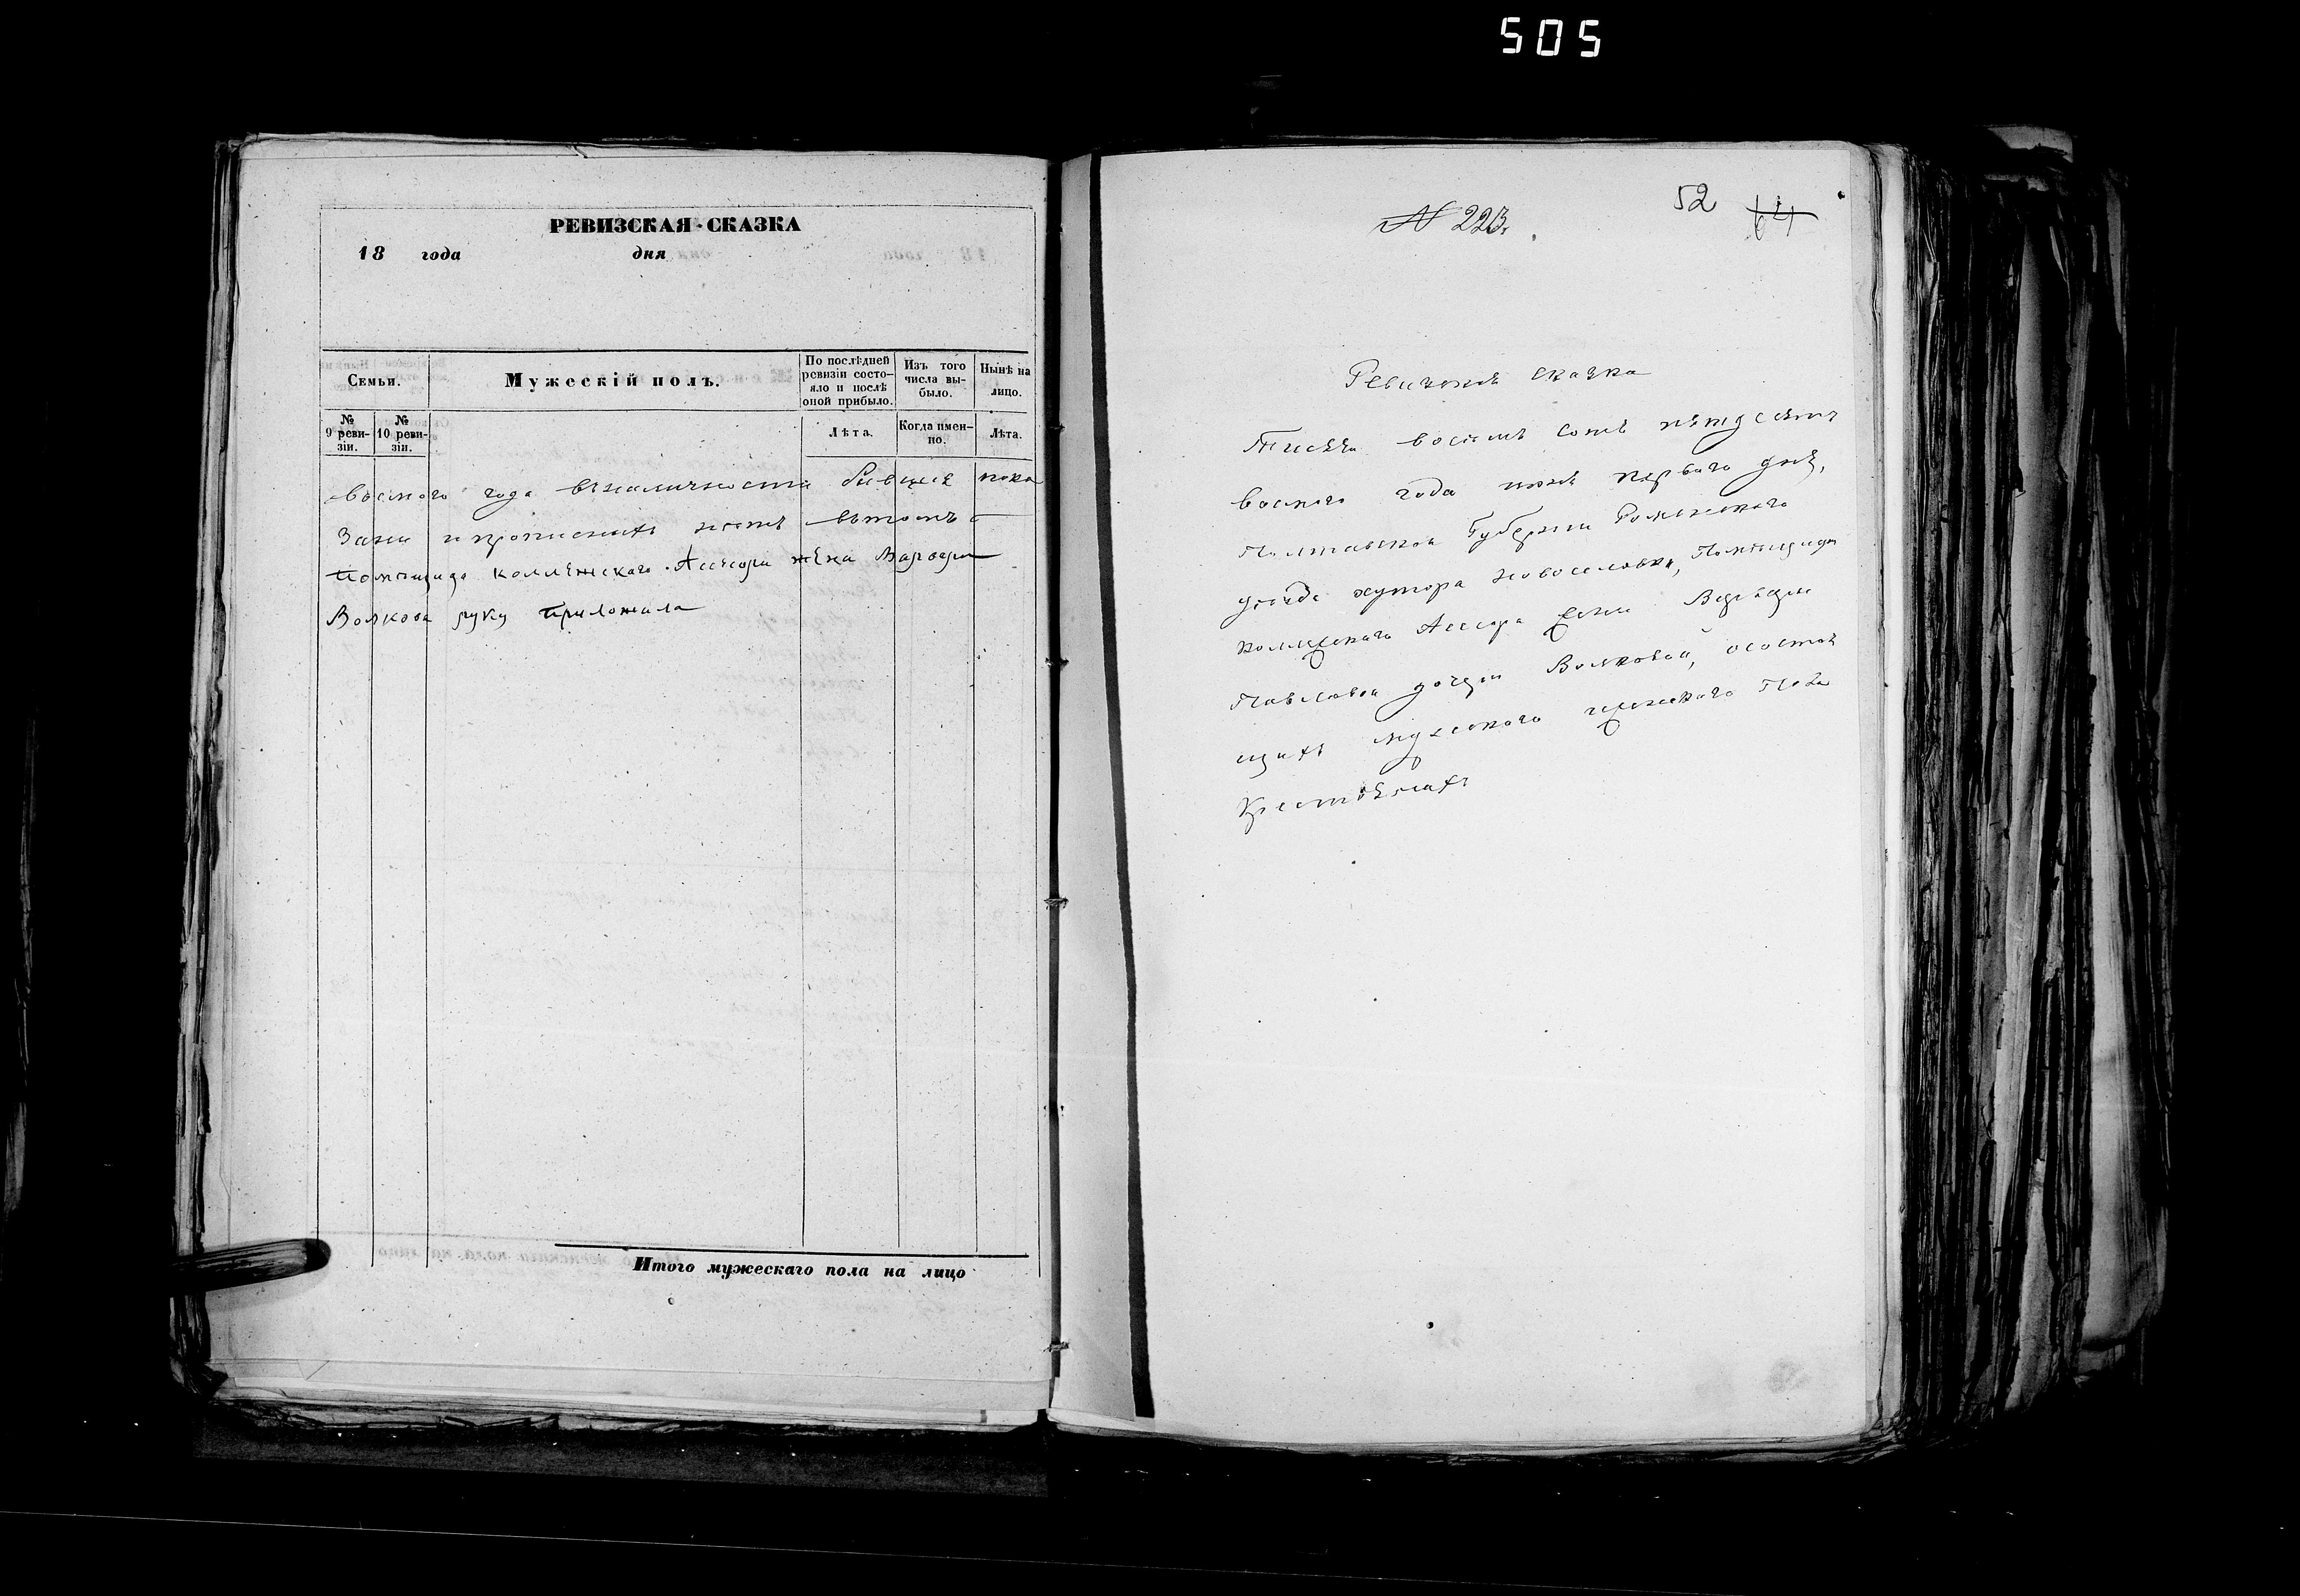 505
РЕВИЗСКАЯ СКАЗКА
18 года дня
Семьи.
Мужескій полъ.
По послѣдней ревизіи состояло и послѣ оной прибыло.
Изъ того числа выбыло.
Нынѣ на лицо.
№ 9 ревизіи.
№ 10 ревизіи.
Лѣта.
Когда именно.
Лѣта.
восмого года вналичности бывшие пока
зани
Помѣщица коллѣжскаго Ассесора жѣна Варвара
Волкова руку приложила
Итого мужескаго пола на лицо
52 64
N 223.
Ревизкая сказка
Тисяча восемъ сотъ пятдесятъ
восмого года июня первого дня,
Полтавской Губернии Роменского
уезда хутора Новоселовки, Помѣщици
Коллежского Ассесора жени Варвари
Павловой дочери Волковой, осостоя
щихъ мужеского иженского Пола
Крестьянахъ